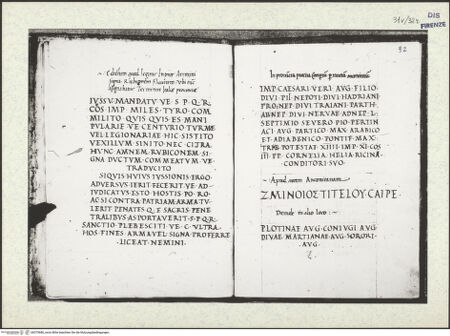 31v/32r
DIS
FIRENZE
Edictum quod legitur in
IVSSV MANDATV VE S P Q R
COS IMP MILES TYRO COM
MILITO QVIS QVIS ES MANI
PVLARIE VE CENTVRIO TVRME
VE LEGIONARIE HIC SISTITO
VEXILLVM SINITO NEC CITRA
HVNC AMNEM RVBICONEM SI
GNA DVCTVM COMMEATVM VE
TRADVCITO
SI QVIS HVIVS IVSSIONIS ERGO
ADVERSVS IERIT FECERIT VE AD
IVDICATVS ESTO HOSTIS PO RO
AC SI CONTRA PATRIAM ARMA TV
LERIT PENATES Q E SACRIS PENE
TRALIBVS ASPORTAVERIT S P Q R
SANCTIO PLEBESCITI VE C VLTRA
HOS FINES ARMA VEL SIGNA PROFERRE
LICEAT NEMINI
32
IMP CAESARI VERI AVG FILIO
DIVI PII NEPOTI DIVI HADRIANI
PRONEP DIVI TRAIANI PARTH
ABNEP DIVI NERVAE ADNEP L
SEPTIMIO SEVERO PIO PERTIN
ACI AVG PARTICO MAX ARABICO
ET ADIABENICO PONTIF MAX
TRIB POTESTAT XIIII IMP XI COS
III PP CORNELIA HELIA RICINA
CONDITORI SVO
Apud
ΖΜΙΝΟΙΟΣ ΤΙΤΕΛΟΥ ΣΑΙΡΕ
Denuo in alio loco
PLOTINAE AVG CONIVGI AVG
DIVAE MARTIANAE AVG SORORI
AVG